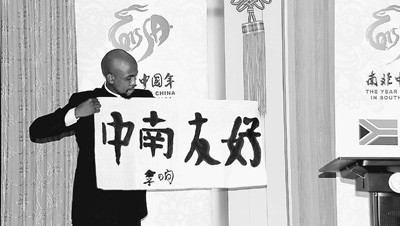 中国年
CHINA
中南友好
南非中
THE YEAR
IN SOUTH